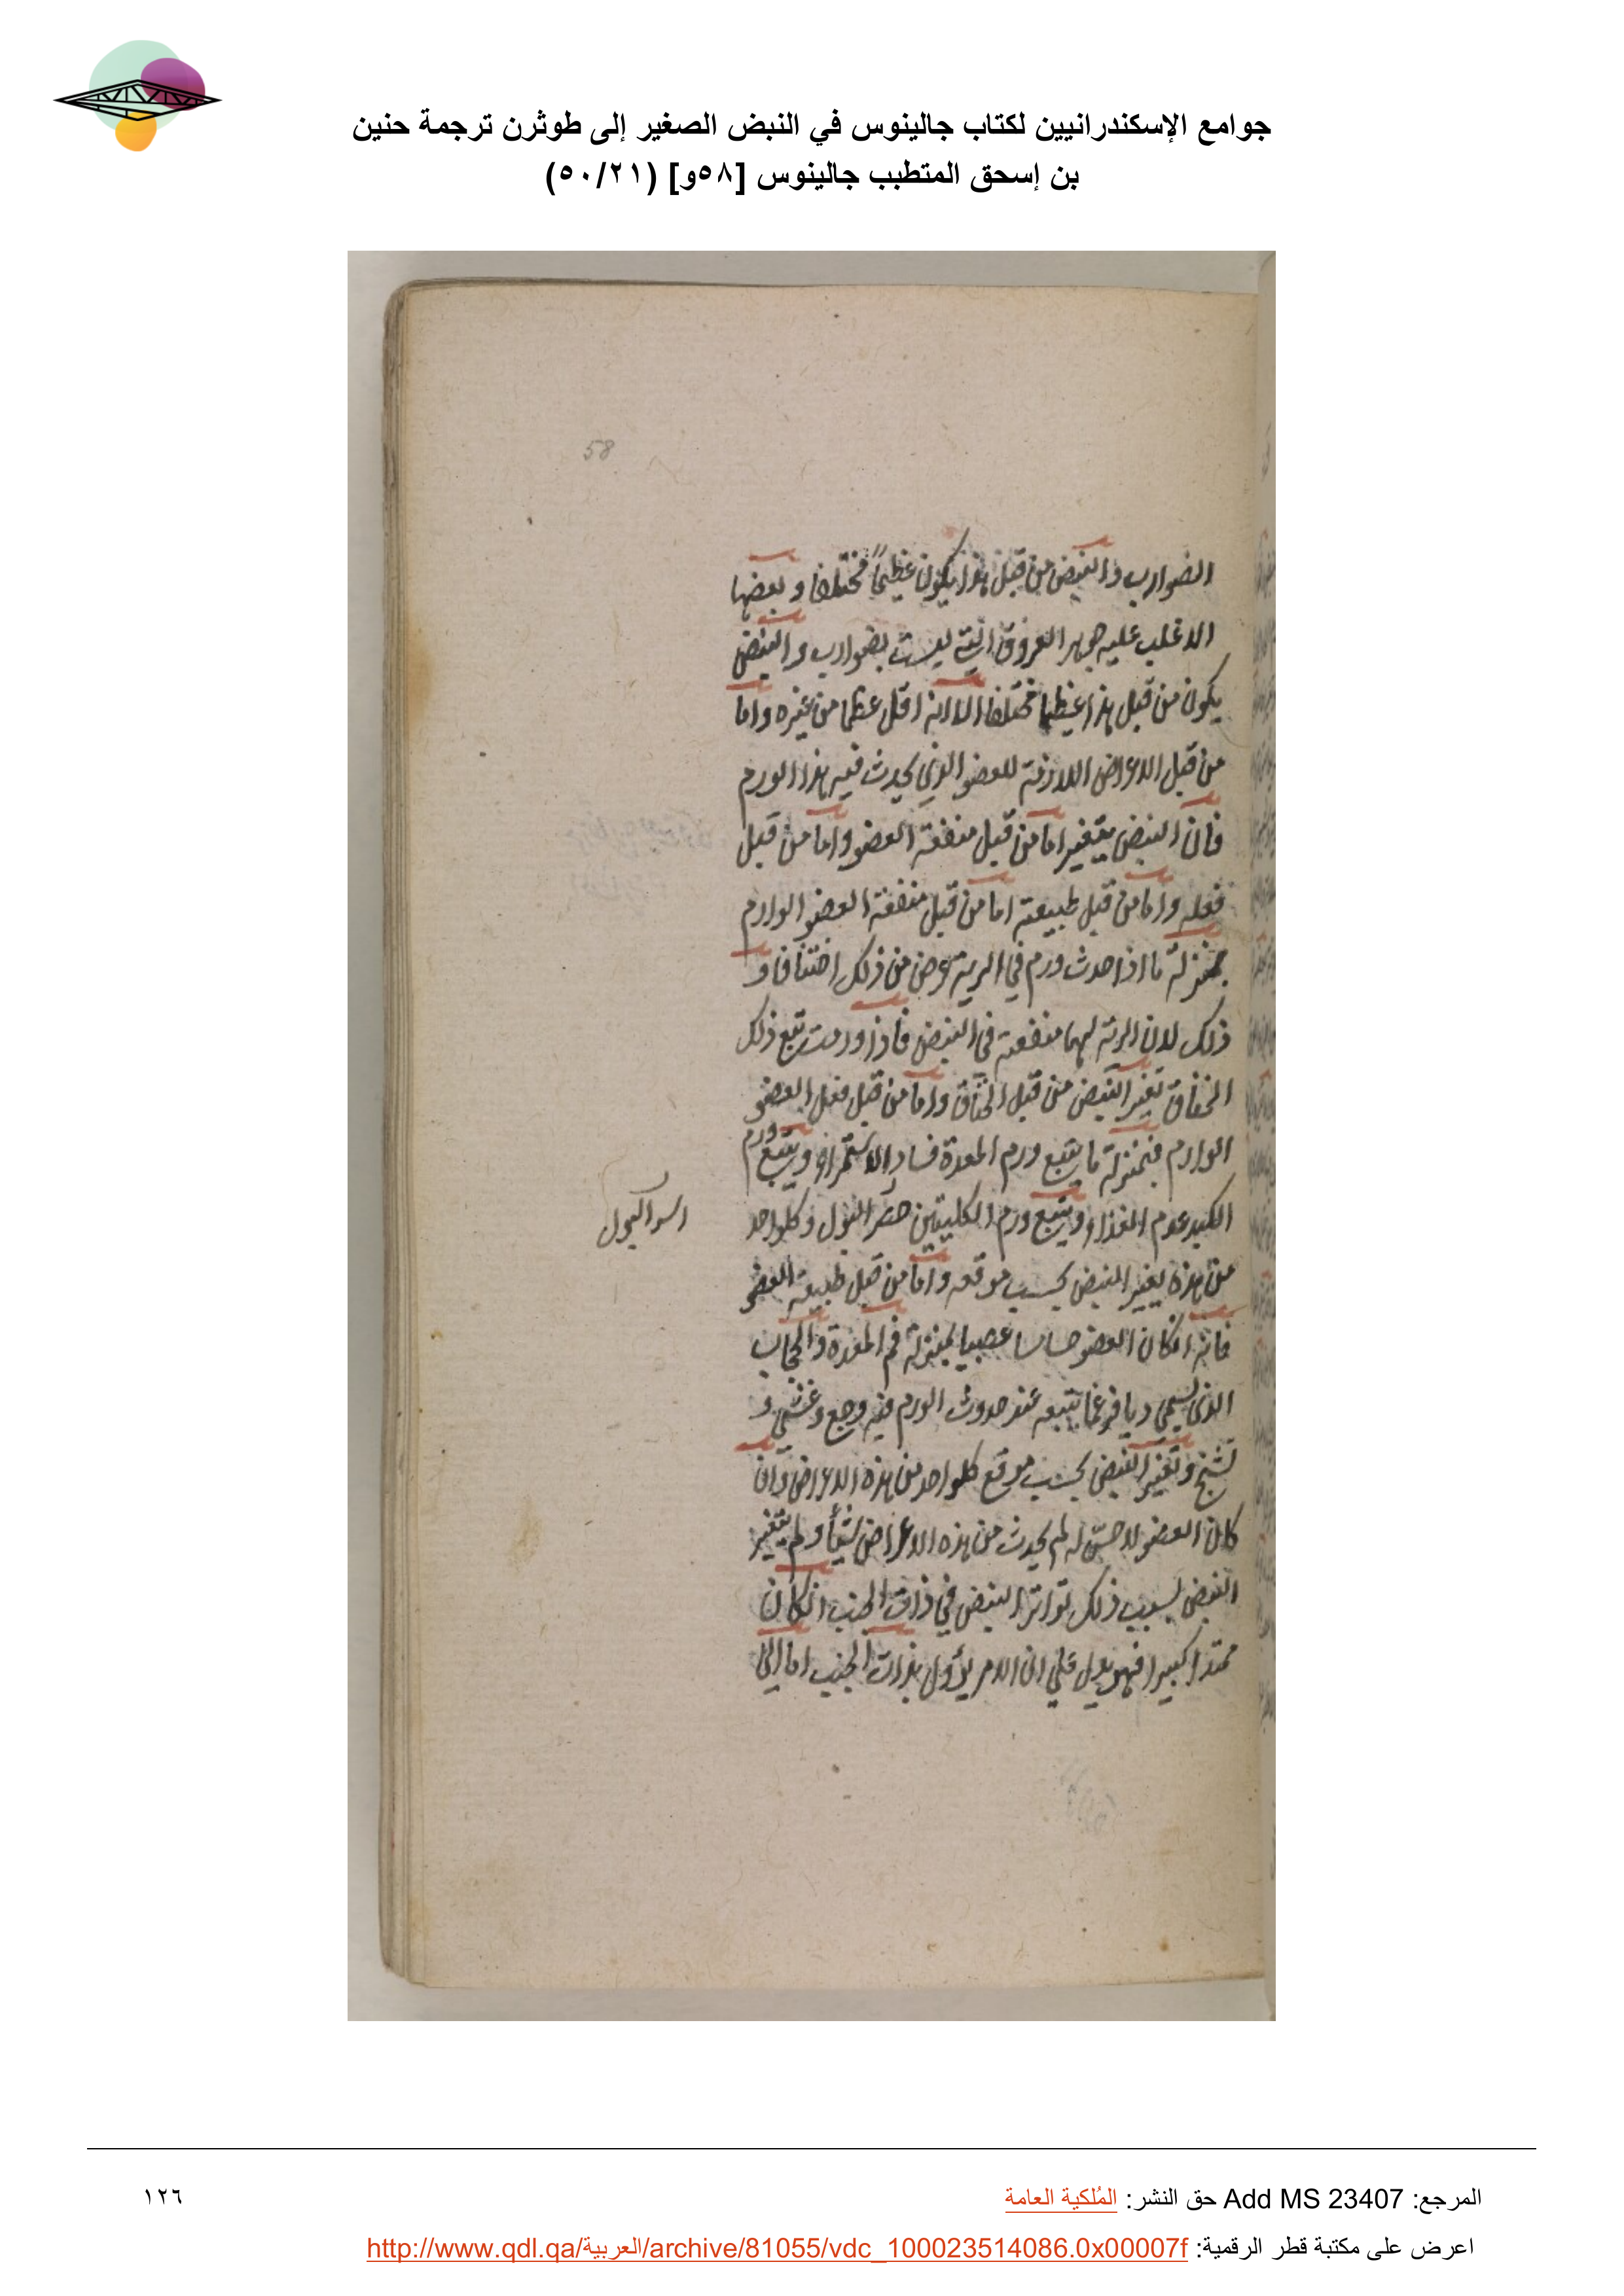 جوامع الإسكندرانيين لكتاب جالينوس في النبض الصغير إلى طوثرن ترجمة حنين
بن إسحق المتطبب جالينوس [٥٨و] (٥٠/٢١)
58
الضوارب والنبض من قبل هذا يكون عظيماً مختلفا وبعضها
الاغلب عليه جوهر العروق التي ليست بضوارب والنبض
يكون من قبل هذا عظيما مختلفا الا انه اقل عظما من غيره واما
من قبل الاعراض اللازمة للعضو الذي يحدث فيه هذا الورم
فان النبض يتغير اما من قبل منفعة العضو واما من قبل
فعله واما من قبل طبيعته اما من قبل منفعة العضو الوارم
بمنزلة ما اذا حدث ورم في الرية عرض من ذلك اختناق و
ذلك لان الرئة لها منفعة في النبض فاذا ورمت تبع ذلك
الخناق تغير النبض من قبل الخناق واما من قبل فعل العضو
الوارم فبمنزلة ما يتبع ورم المعدة فساد الاستمراء ويتبع ورم
الكبد عدم الغذاء ويتبع ورم الكليتين حصر البول وكلواحد
اسر البول
من هذه يغير النبض بحسب موقعه واما من قبل طبيعة العضو
فانه انكان العضو حساسا عصبيا بمنزلة فم المعدة والحجاب
الذي يسمى ديافرغما يتبعه عند حدوث الورم فيه وجع وغشي و
تشنج وتغير النبض بحسب موقع كلواحد من هذه الاعراض وان
كان العضو لا حسّ له لم يحدث من هذه الاعراض شيئا ولم يتغير
النبض بسبب ذلك تواتر النبض في ذات الجنب انكان
ممتدا كبيرا فهو يدل على ان الامر يؤل بذات الجنب اما الى
المرجع: Add MS 23407 حق النشر: المُلكية العامة
١٢٦
اعرض على مكتبة قطر الرقمية: http://www.qdl.qa/العربية/archive/81055/vdc_100023514086.0x00007f